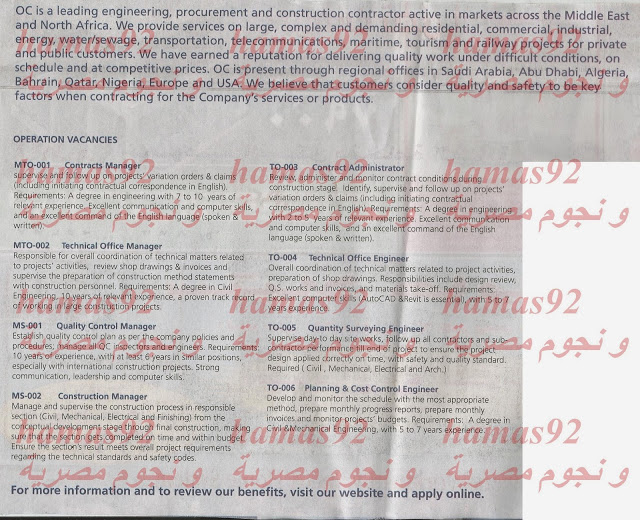 OC is a leading engineering, procurement and construction contractor active in markets across the Middle East
and North Africa. We provide services on large, complex and demanding residential, commercial, industrial,
energy, water/sewage, transportation, telecommunications, maritime, tourism and railway projects for private
and public customers. We have earned a reputation for delivering quality work under difficult conditions, on
schedule and at competitive prices. OC is present through regional offices in Saudi Arabia, Abu Dhabi, Algeria,
Bahrain, Qatar, Nigeria, Europe and USA. We believe that customers consider quality and safety to be key
factors when contracting for the Company's services or products.
OPERATION VACANCIES
MTO-001 Contracts Manager
Supervise and follow up on projects' variation orders & claims
(including initiating contractual correspondence in English).
Requirements: A degree in engineering with 7 to 10 years of
relevant experience. Excellent communication and computer skills,
and an excellent command of the English language (spoken &
written).
MTO-002 Technical Office Manager
Responsible for overall coordination of technical matters related
to projects' activities, review shop drawings & invoices and
supervise the preparation of construction method statements
with construction personnel. Requirements: A degree in Civil
Engineering, 10 years of relevant experience, a proven track record
of working on large construction projects.
MS-001 Quality Control Manager
Establish quality control plan as per the company policies and
procedures; manage all QC inspectors and engineers. Requirements:
10 years of experience, with at least 6 years in similar positions,
especially with international construction projects. Strong
communication, leadership and computer skills.
MS-002 Construction Manager
Manage and supervise the construction process in responsible
section (Civil, Mechanical, Electrical and Finishing) from the
conceptual development stage through final construction, making
sure that the project gets completed on time and within budget.
Ensure the section's result meets overall project requirements
regarding the technical standards and safety codes.
TO-003 Contract Administrator
Review, administer and monitor contract conditions during
construction stage. Identify, supervise and follow up on projects'
variation orders & claims (including initiating contractual
correspondence in English). Requirements: A degree in engineering
with 2 to 5 years of relevant experience. Excellent communication
and computer skills, and an excellent command of the English
language (spoken & written).
TO-004 Technical Office Engineer
Overall coordination of technical matters related to project activities,
preparation of shop drawings. Responsibilities include design review,
Q.S. works and invoices, and materials take-off. Requirements:
computer skills (AutoCAD &Revit is essential), with 5 to 7
years experience.
TO-005 Quantity Surveying Engineer
Supervise day to day site works, follow up all contractors and sub-
contractors performance and of project to ensure the project
design applied correctly on time, with safety and quality standard.
Required ( Civil , Mechanical, Electrical and Arch.)
TO-006 Planning & Cost Control Engineer
Develop and monitor the schedule with the most appropriate
method, prepare monthly progress reports, prepare monthly
invoices and monitor projects' budgets. Requirements: A degree in
Civil &Mechanical Engineering, with 5 to 7 years experience.
For more information and to review our benefits, visit our website and apply online.
hamas92
و نجوم مصرية